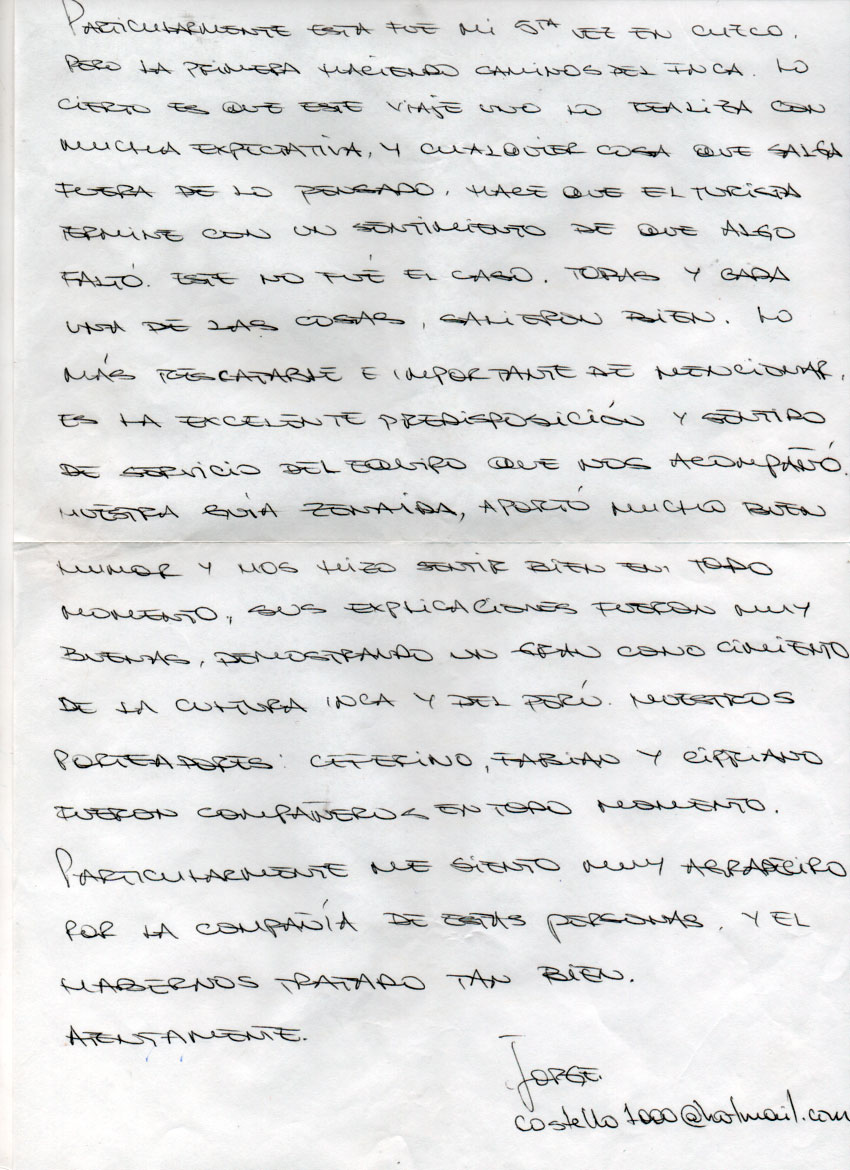 PARTICULARMENTE ESTA FUE MI 5TA VEZ EN CUZCO,
PERO LA PRIMERA HACIENDO CAMINOS DEL INCA. LO
CIERTO ES QUE ESTE VIAJE UNO LO REALIZA CON
MUCHA EXPECTATIVA, Y CUALQUIER COSA QUE SALGA
FUERA DE LO PENSADO, HACE QUE EL TURISTA
TERMINE CON UN SENTIMIENTO DE QUE ALGO
FALTÓ. ESTE NO FUÉ EL CASO. TODAS Y CADA
UNA DE LAS COSAS, SALIERON BIEN. LO
MÁS RESCATABLE E IMPORTANTE DE MENCIONAR,
ES LA EXCELENTE PREDISPOSICIÓN Y SENTIDO
DE SERVICIO DEL EQUIPO QUE NOS ACOMPAÑÓ.
NUESTRA GUÍA ZENAIDA, APORTÓ MUCHO BUEN
HUMOR Y NOS HIZO SENTIR BIEN EN TODO
MOMENTO, SUS EXPLICACIONES FUERON MUY
BUENAS, DEMOSTRANDO UN GRAN CONOCIMIENTO
DE LA CULTURA INCA Y DEL PERÚ. NUESTROS
PORTEADORES: CEFERINO, FABIAN Y CIPRIANO
FUERON COMPAÑEROS EN TODO MOMENTO.
PARTICULARMENTE ME SIENTO MUY AGRADECIDO
POR LA COMPAÑÍA DE ESTAS PERSONAS, Y EL
HABERNOS TRATADO TAN BIEN.
ATENTAMENTE.
JORGE.
costello1000@hotmail.com